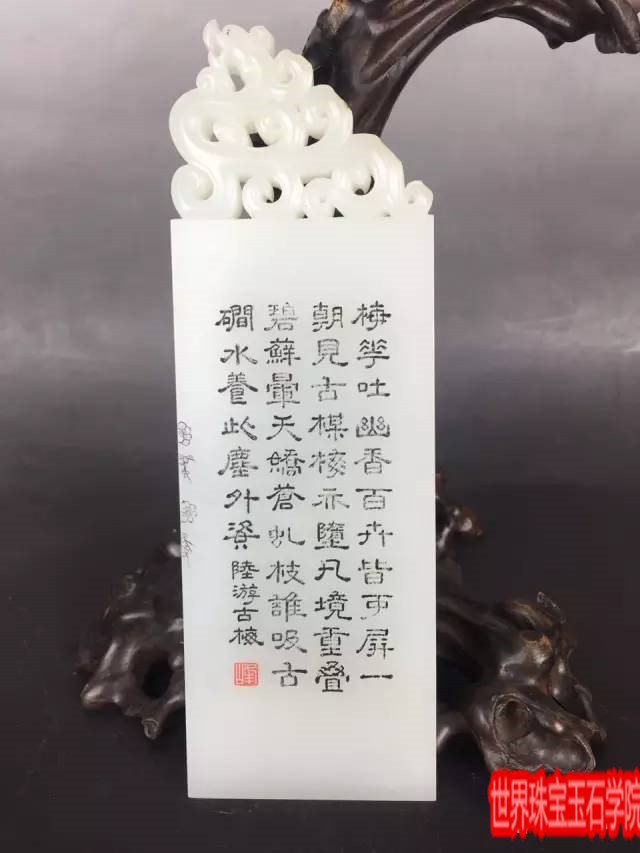 梅華吐幽香百卉皆可屏一
朝見古楳梅亦墮凡境重疊
碧蘚暈夭矯蒼虬枝誰吸古
磵水養此塵外資陸游古梅
世界珠宝玉石学院